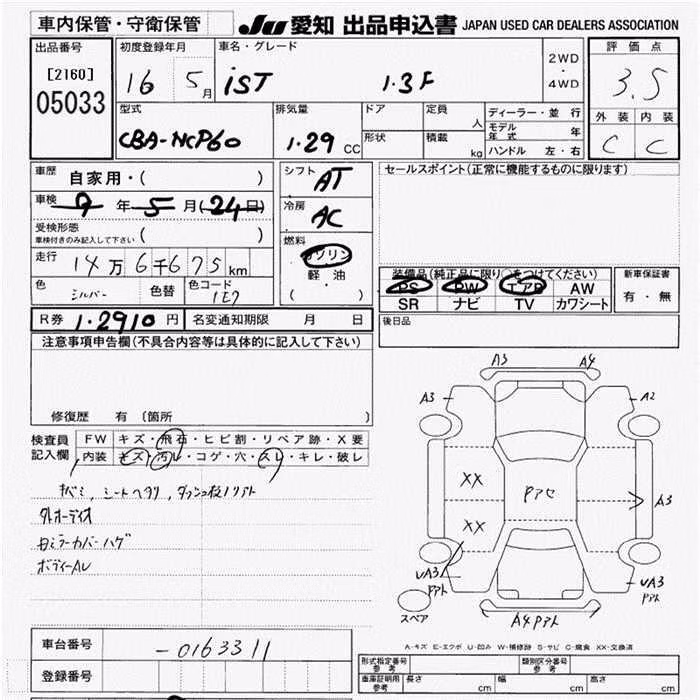 車内保管・守衛保管 JU 愛知 出品申込書 JAPAN USED CAR DEALERS ASSOCIATION
出品番号 初度登録年月 車名・グレード 2WD・4WD 評価点
[2160] 05033 16 5月 iST 1.3F 3.5
型式 排気量 ドア 定員 人 ディーラー・並行 外装 内装
CBA-NCP60 1.29 CC 形状 積載 kg モデル年式 年 C C
ハンドル 左・右
車歴 自家用・( ) シフト AT セールスポイント(正常に機能するものに限ります)
車検 9年5月(24日) 冷房 AC
受検形態 車検付きのみ記入して下さい ( )
燃料 ガソリン 軽油 ( )
走行 14万6千675km
色 シルバー 色替 色コード 1E7
装備品(純正品に限り○をつけてください) 新車保証書
PS PW エアB AW 有・無
SR ナビ TV カワシート
R券 1.2910円 名変通知期限 月 日 後日品
注意事項申告欄(不具合内容等は具体的に記入して下さい)
修復歴 有 (箇所
検査員記入欄 FW キズ・飛石・ヒビ割・リペア跡・X要
内装 キズ・汚レ・コゲ・穴・スレ・キレ・破レ
外オーディオ
ミラーカバーハゲ
A3 A4
A3 A2
XX Pアセ A3
XX
UA3 Pアト UA3 Pアト
スペア A4Pアト
A-キズ E-エクボ U-凹み W-補修跡 S-サビ C-腐食 XX-交換済
車台番号 -0163311
登録番号
形式指定番号 参考 類別区分番号 参考
車庫証明 参考 長さ cm 幅 cm 高さ cm